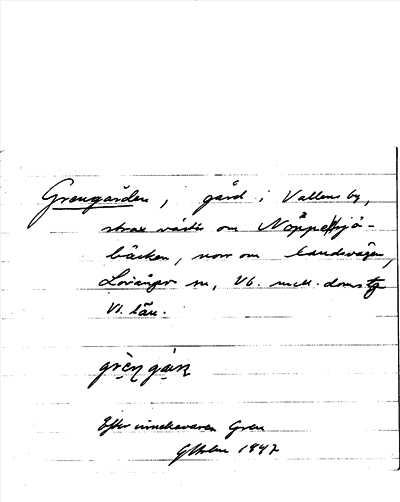 Grengården, gård i Vallens by,
strax väster om Näppelsjö-
bäcken, norr om landsvägen,
Lövånger sn, Vb. mell. doms tg
Vb. län.
grèṇ gáṇ
Efter innehavaren Gren
GHolm 1947